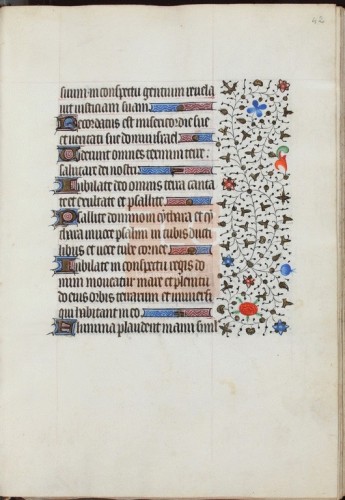 42
suum in conspectu gentium reuela
uit iusticiam suam
Recordatus est misericordie sue
et ueritati sue domui israel
Uiderunt omnes termini terre
salutare dei nostri
Iubilate deo omnis terra canta
te et exultate et psallite
Psallite domino in cythara et cy
thara et uoce psalmi in tubis ducti
libus et uoce tube cornee
Iubilate in conspectu regis do
mini moueatur mare et plenitu
do eius orbis terrarum et uniuersi
qui habitant in eo
Flumina plaudent manu simul